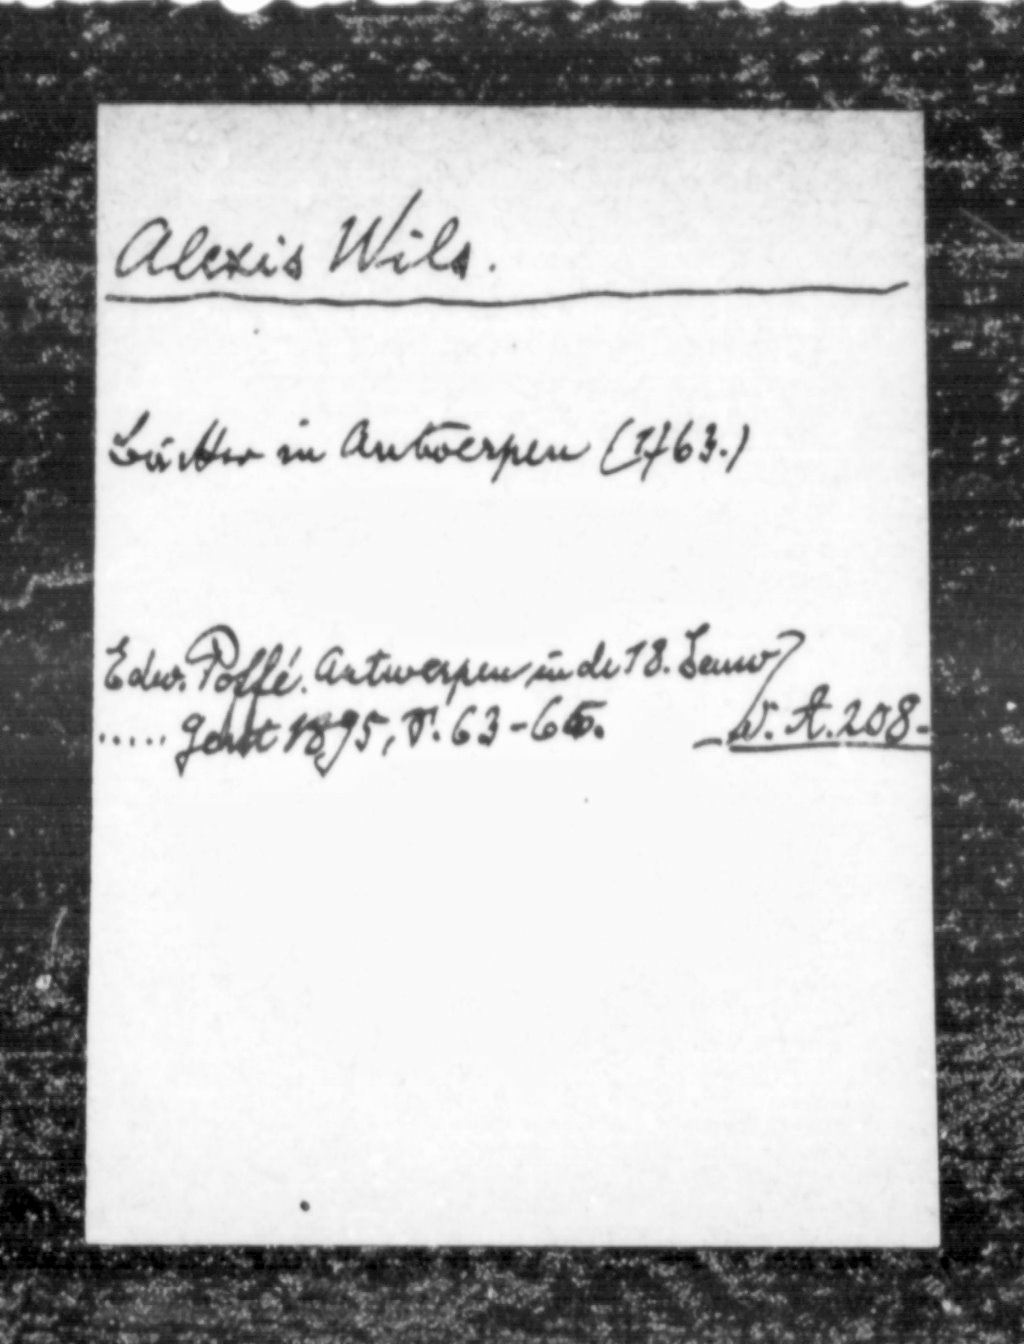 Alexis Wils.
in Antwerpen (1763.)
Edw. Poffé. Antwerpen in de 18. Eeuw
..... Gent 1895, P. 63-65. W. A. 208.